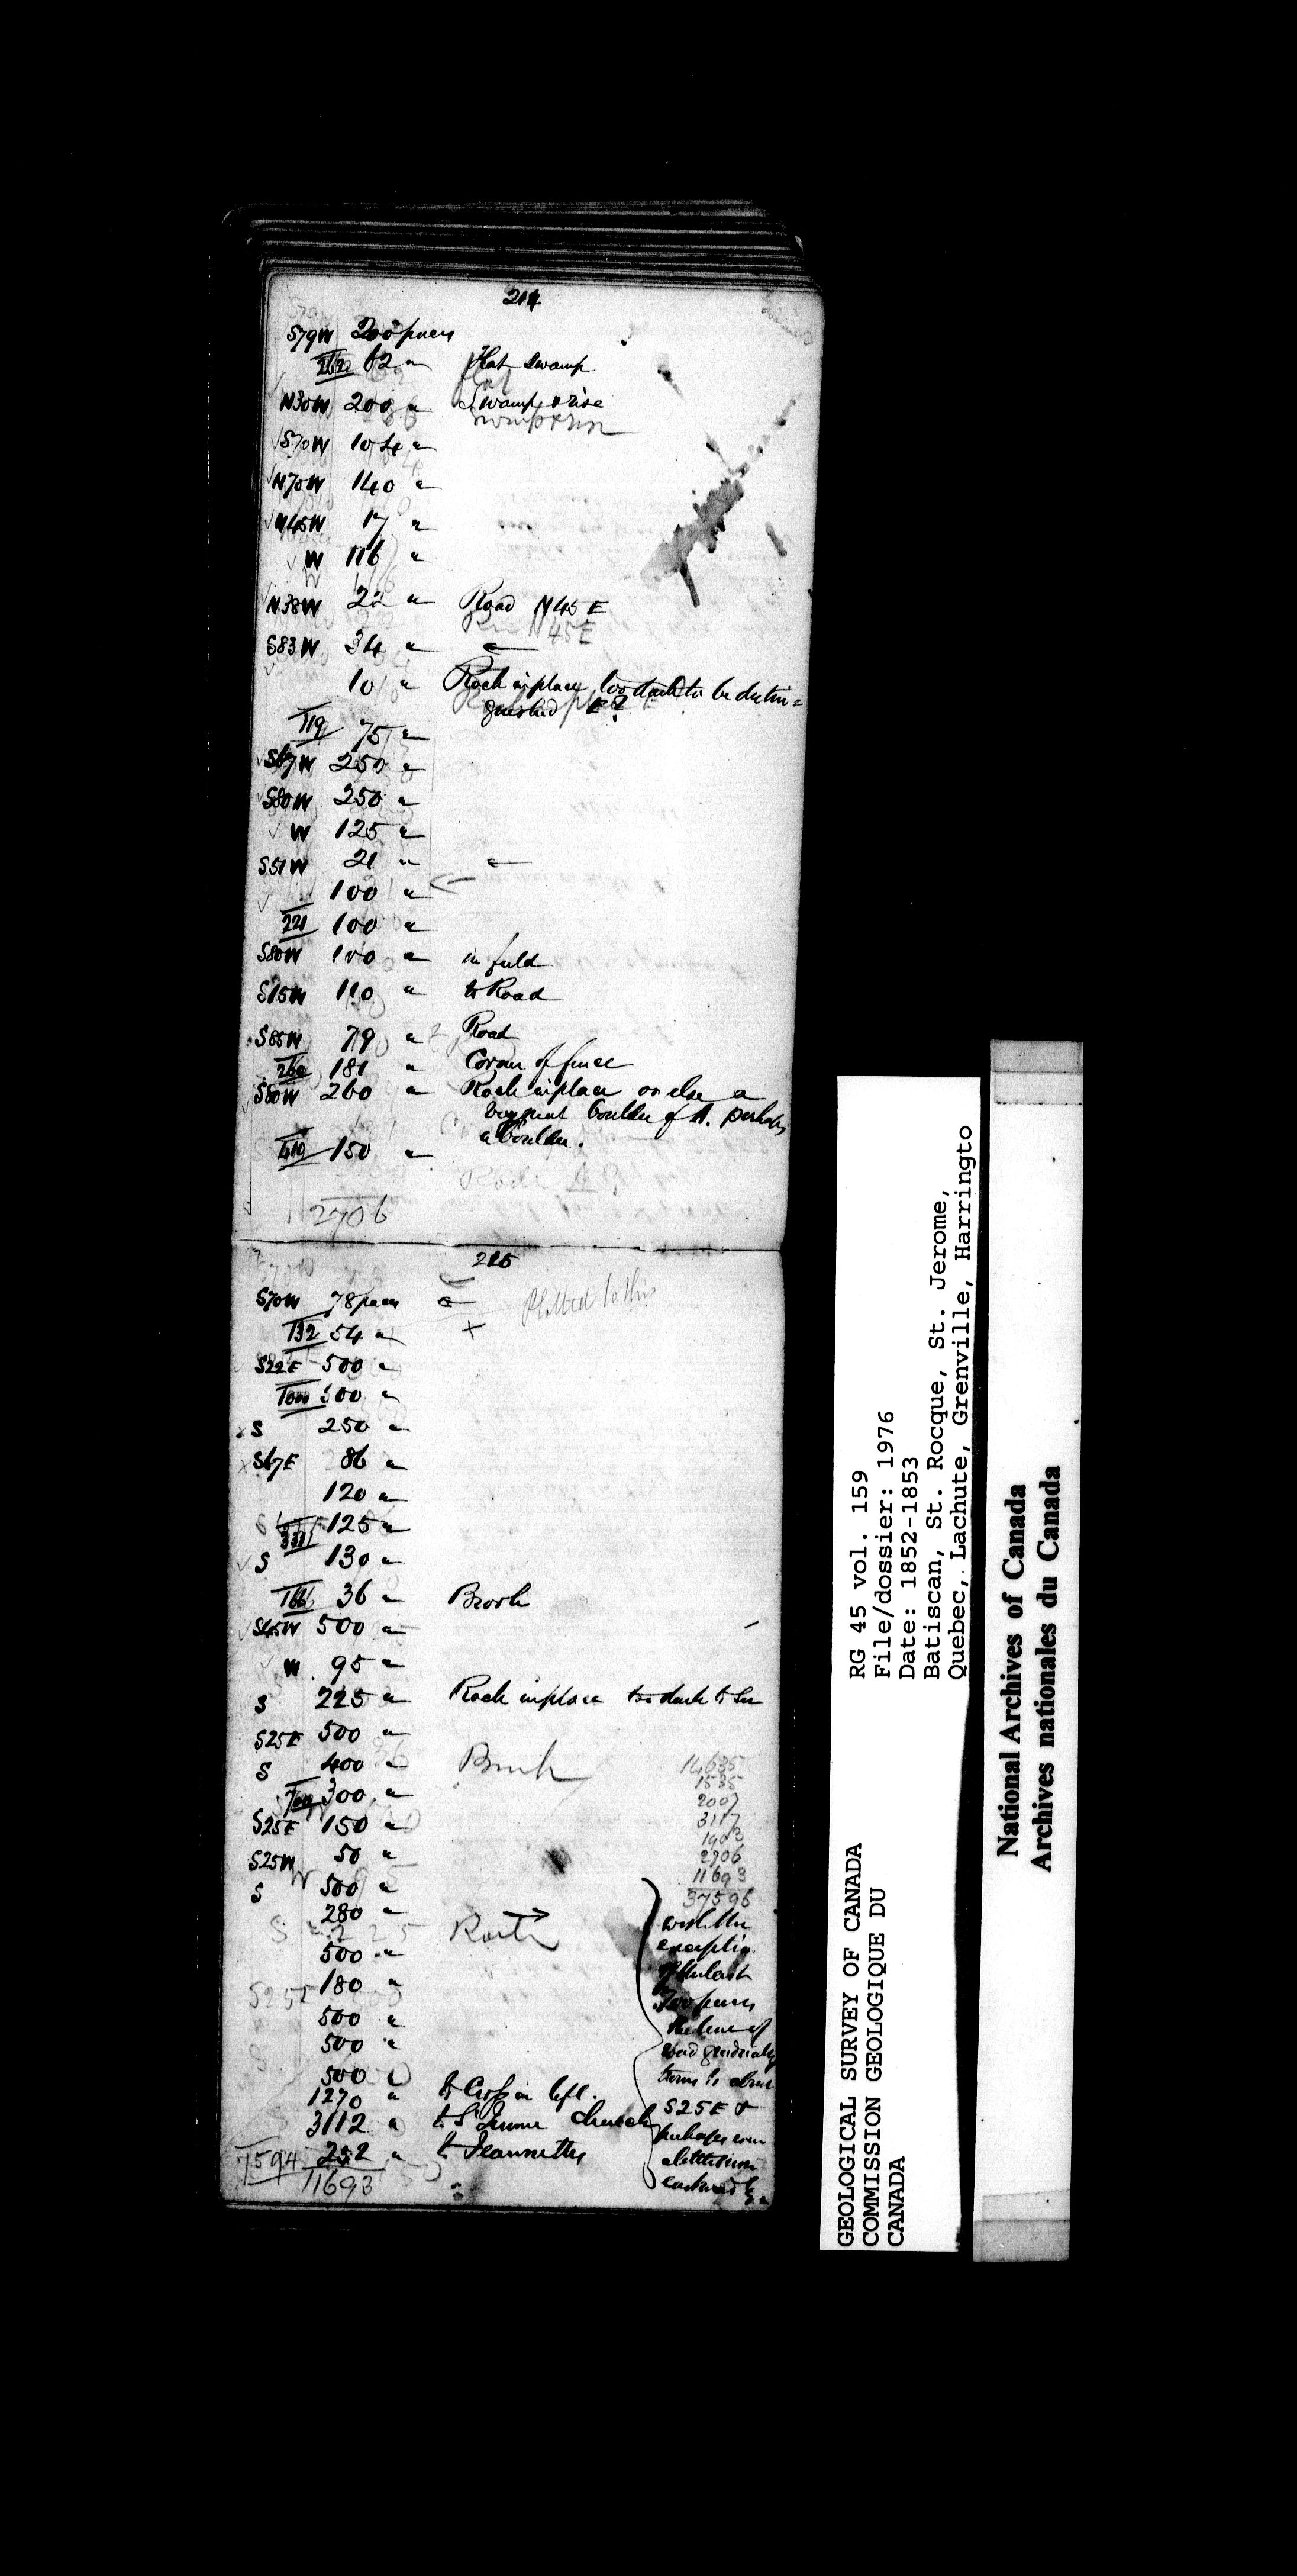 214
S79W 200 paces
262 62 " Flat swamp
N30W 200 " Swamp & rise
S70W 104 "
N70W 140 "
N45W 17 "
W 116 "
N38W 22 " Road N45E
S83W 34 " ←
10 " Rock in place, too dark to be distin=
guished E?
119 75 "
S67W 250 "
S80W 250 "
W 125 "
S51W 21 " ←
100 "
221 100 "
S80W 100 " in field
S15W 110 " to Road
S85W 79 " Road
260 181 " Corner of fence
S80W 260 " Rock in place or else a
very great boulder of A. perhaps
a boulder.
410 150 "
2706
215
S70W 78 paces ← Plotted to this
132 54 " +
S22E 500 "
1000 500 "
S 250 "
S67E 86 "
120 "
331 125 "
S 130 "
166 36 " Brook
S45W 500 "
W 95 "
S 225 " Rock in place too dark to see
S25E 500 "
S 400 "
700 300 "
S25E 150 "
S25W 50 "
S 500 "
280 " →
500 "
180 "
500 "
500 "
500 "
1270 " to Cross on left.
3112 " to St Jerome Church
7594 252 " to Jeannettes
11693
14635
1535
2007
3117
1903
2706
11693
37596
with the
exception
of the last
700 paces
the line of
road gradually
turns to about
S25E &
perhaps even
a little more
eastward
RG 45 vol. 159
File/dossier: 1976
Date: 1852-1853
Batiscan, St. Rocque, St. Jerome,
Quebec, Lachute, Grenville, Harringto
GEOLOGICAL SURVEY OF CANADA
COMMISSION GEOLOGIQUE DU
CANADA
National Archives of Canada
Archives nationales du Canada